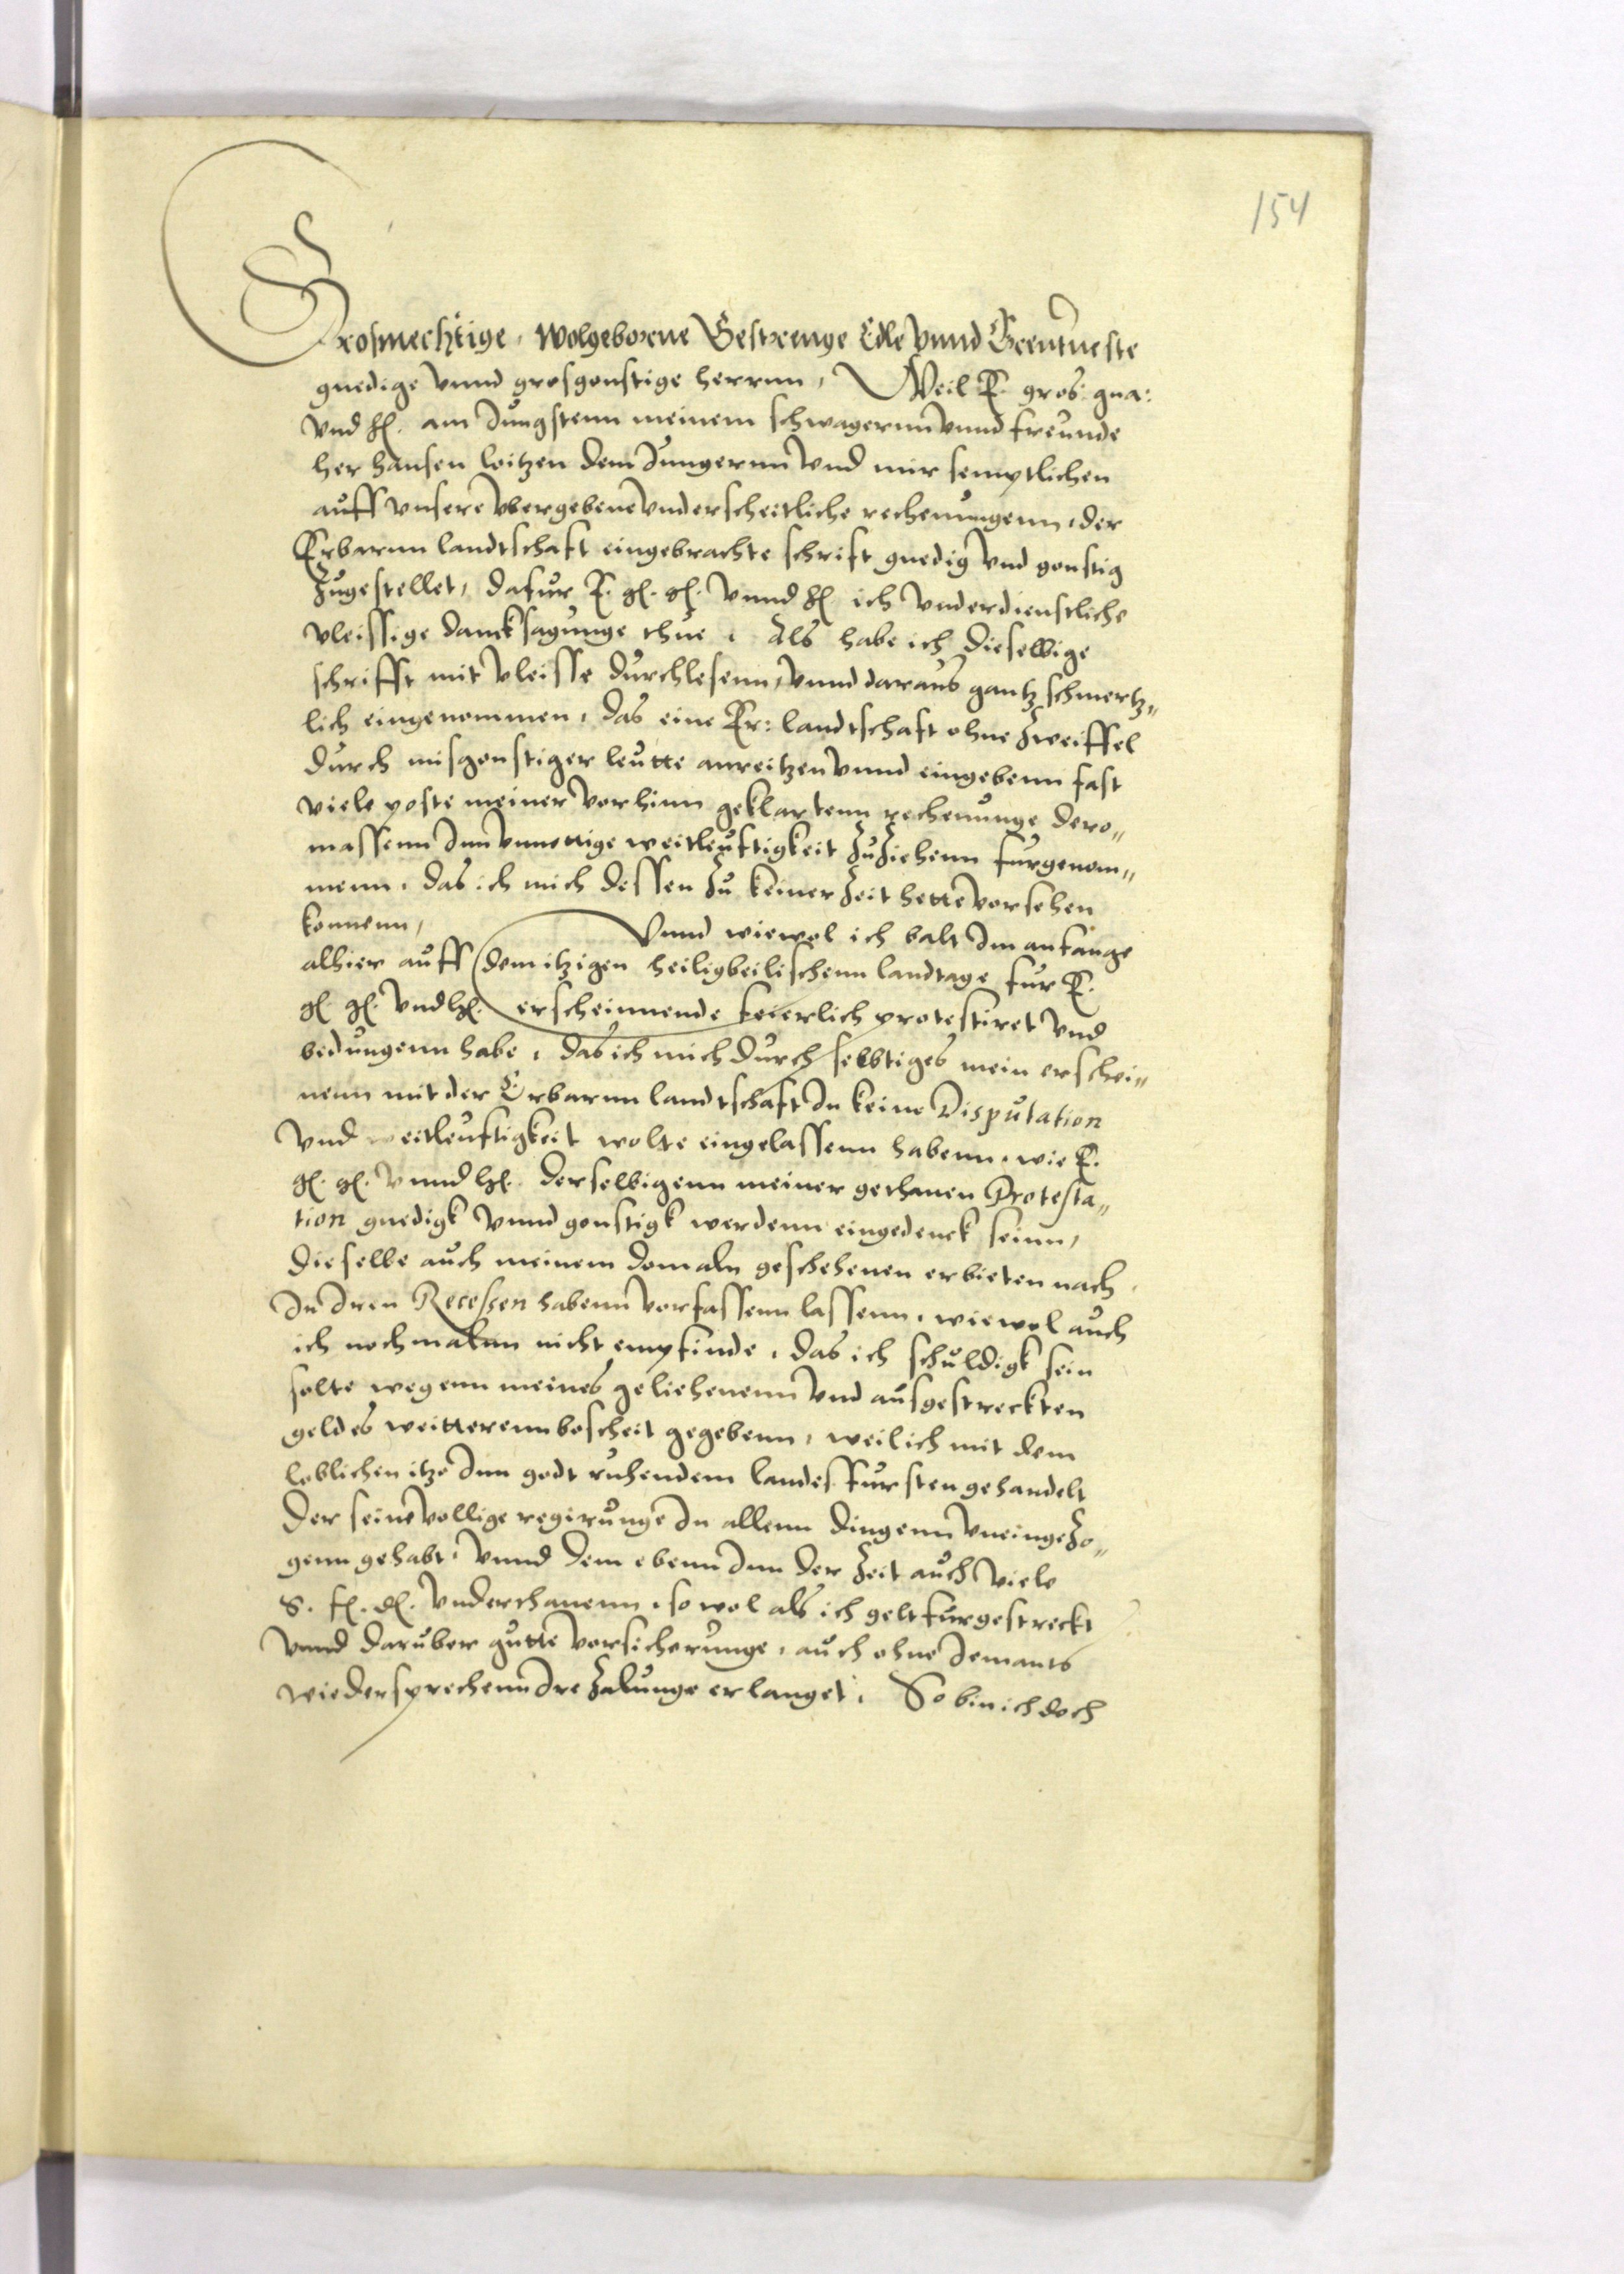 154
Grosmechtige, Wolgeborne Gestrenge Edle vnnd Erentueste
gnedige vnnd grosgonstige herrnn, Weil E. gros: gna:
vnd hl. am Jungstenn meinem schwagernn vnnd freunde
her hansen loitzen dem Jungernn vnd mir semptlichen
auff vnsere vbergebene vnderscheitliche rechenungenn, der
Erbarnn landtschaft eingebrachte schrift gnedig vnd gonstig
Zugestellet, dafur E. gl. gl. vnnd hl. ich vnderdienstliche
vleissige dancksagunge thue, Als habe ich dieselbige
schrifft mit vleisse durchlesenn, vnnd daraus gantz schmertz„
lich eingenommen, das eine Er: landtschaft ohne Zweiffel
durch misgonstiger leutte anreitzen vnnd eingebenn fast
viele poste meiner vorhinn geklartenn rechenunge dero„
massenn Inn vnnottige weitleuftigkeit Zu Ziehenn furgenom„
menn, das ich mich dessen Zu keiner Zeit hette vorsehen
konnenn, Vnnd wiewol ich balt Im anfange
alhier auff dem itzigen heiligbeilischenn landtage fur E.
gl. gl. vnd hl. erscheinnende feierlich protestiret vnd
bedungenn habe, das ich mich durch selbtiges mein erschei„
nenn mit der Erbarnn landtschaft In keine Disputation
vnd weitleuftigkeit wolte eingelassenn habenn, wie E.
gl. gl. vnnd hl. derselbigenn meiner gethanen Protesta„
tion gnedigk vnnd gonstigk werdenn eingedenck seinn,
dieselbe auch meinem domaln geschehenen erbieten nach
In Iren Recessen habenn vorfassenn lassenn, wiewol auch
ich nochmalnn nicht empfinde, das ich schuldigk sein
solte wegenn meines geliehenenn vnd ausgestreckten
geldes weitterenn bescheit gegebenn, weil ich mit dem
loblichen itzo Inn godt ruhendem landesfursten gehandelt
der seine vollige regirunge In allenn dingenn vneingeZo„
genn gehabt, vnnd dem ebenn Inn der Zeit auch viele
S. fl. dl. vnderthanenn, so wol als ich gelt furgestreckt
vnnd daruber gutte vorsicherunge, auch ohne Jemants
wiedersprechenn Ire Zalunge erlanget, So bin ich doch